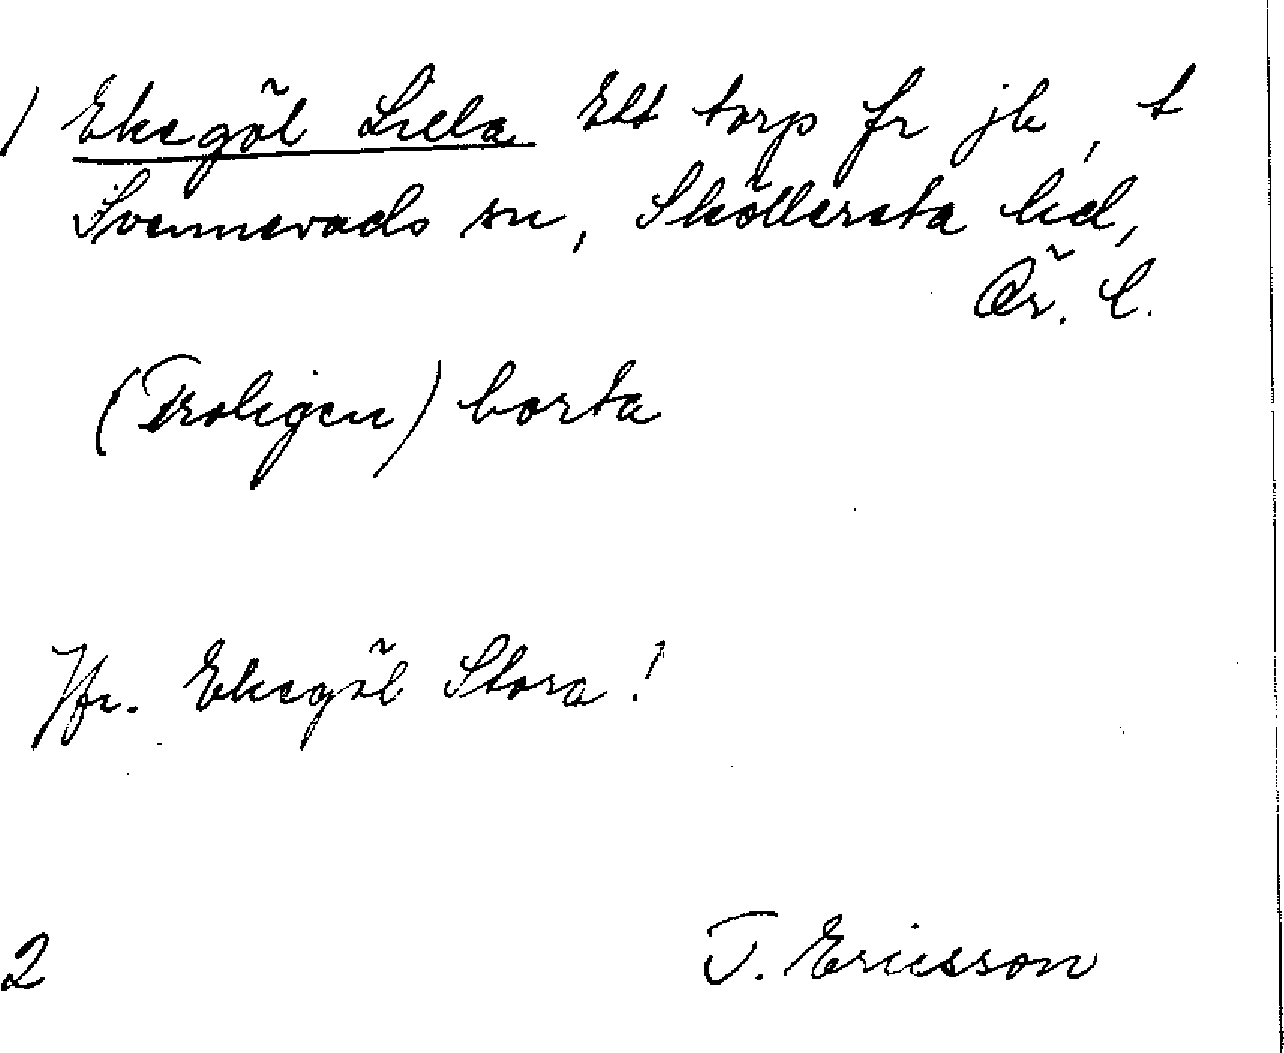 ) Ekegöl Lilla Ett torp fr jb, t
Svennevads sn, Sköllersta hd,
Ör. l.
(Troligen) borta
Jfr. Ekegöl Stora!
2 T. Ericsson